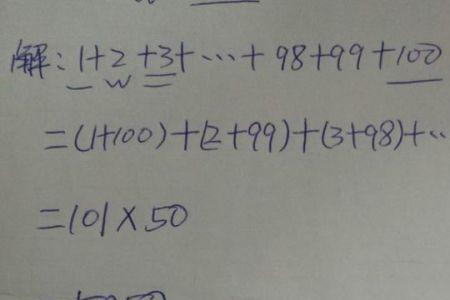 解：1+2+3+…+98+99+100
=(1+100)+(2+99)+(3+98)+…
=101×50